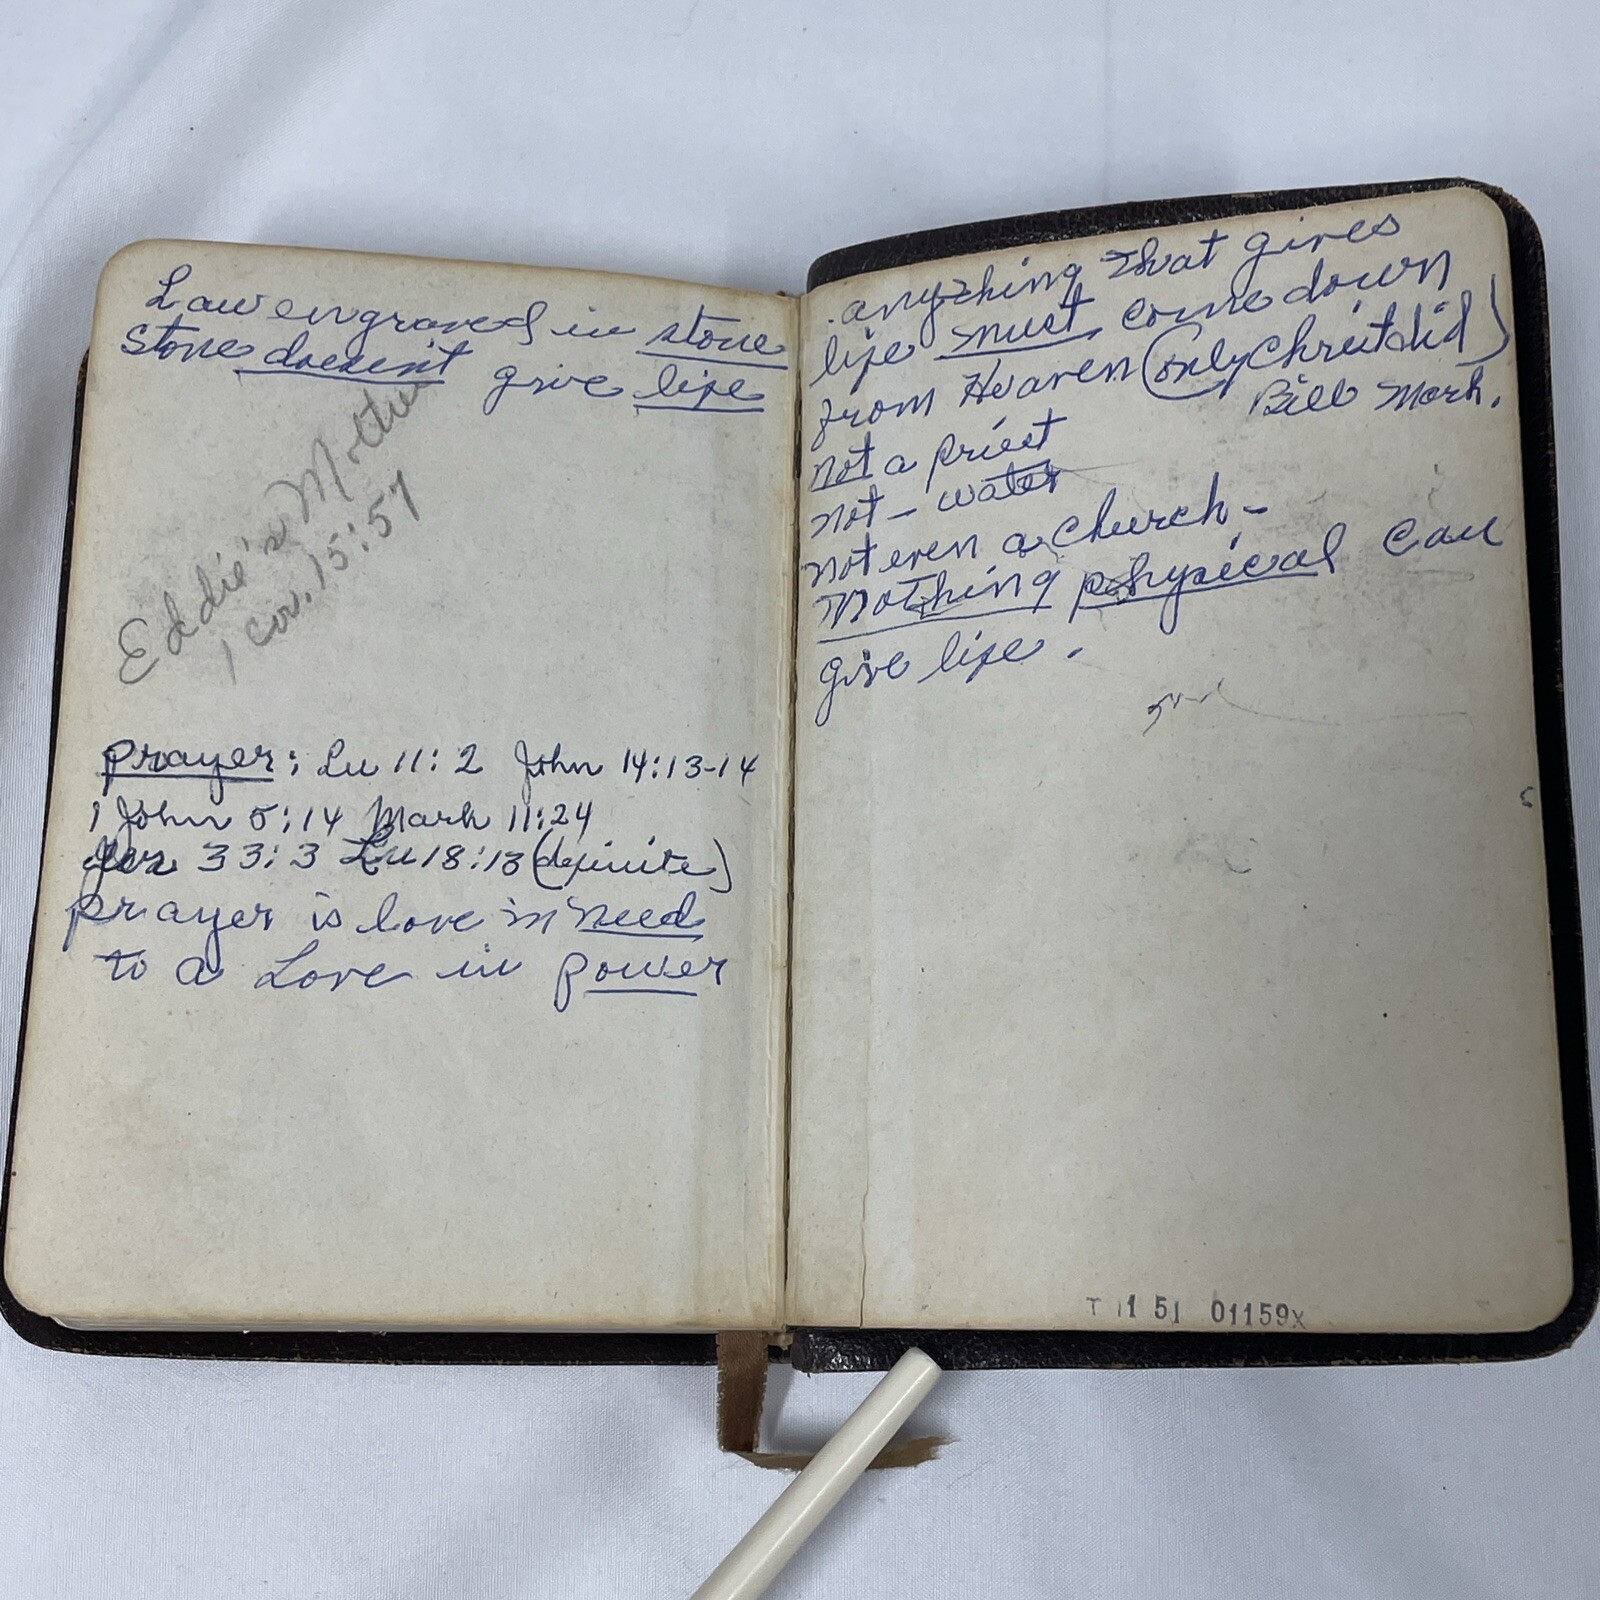 Law engraved in stone
stone doesent give life
Eddie's Mother
1 Cor. 15:57
prayer: Lu 11:2 John 14:13-14
1 John 5:14 Mark 11:24
Jer 33:3 Lu 18:13 (definite)
prayer is love in need
to a Love in power
anything that gives
life must come down
from Heaven (only Christ did)
Bill
not a priest
not - water
not even a church -
Nothing physical can
give life.
T 11 51 01159X